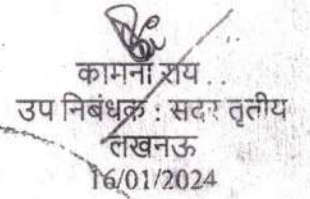 कामना राय . .
उप निबंधक : सदर तृतीय
लखनऊ
16/01/2024